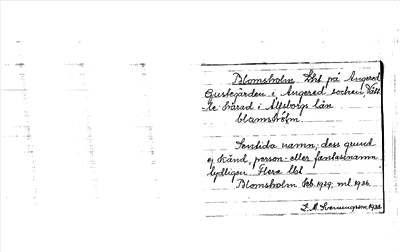 Blomsholm Lht på Angered
Gustegården i Angered socken, Vätt-
le härad i Älfsborgs län
blamshòlm.
Sentida namn; dess grund
ej känd, person- eller fantasinamn
tydligen. Flera lht
Blomsholm feb. 1929, ml. 1936.
1935